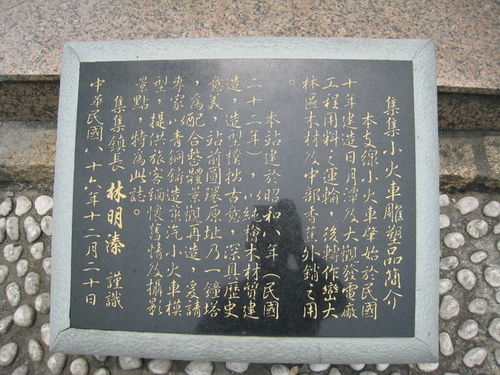 集集小火車雕塑品簡介
本支線小火車肇始於民國
十年建造日月潭及大觀發電廠
工程用料之運輸,後轉作巒大
林區木材及中部香蕉外銷之用
。
本站建於昭和八年(民國
二十二年),以純檜木材質建
造,造型樸拙古意,深具歷史
意義,站前圓環原址乃一鐘塔
,為配合整體景觀再造,爰請
專家以青銅鑄造蒸汽小火車模
型,提供旅客緬懷舊情及攝影
景點,特為此誌。
集集鎮長 林明溱 謹識
中華民國八十六年十二月二十日